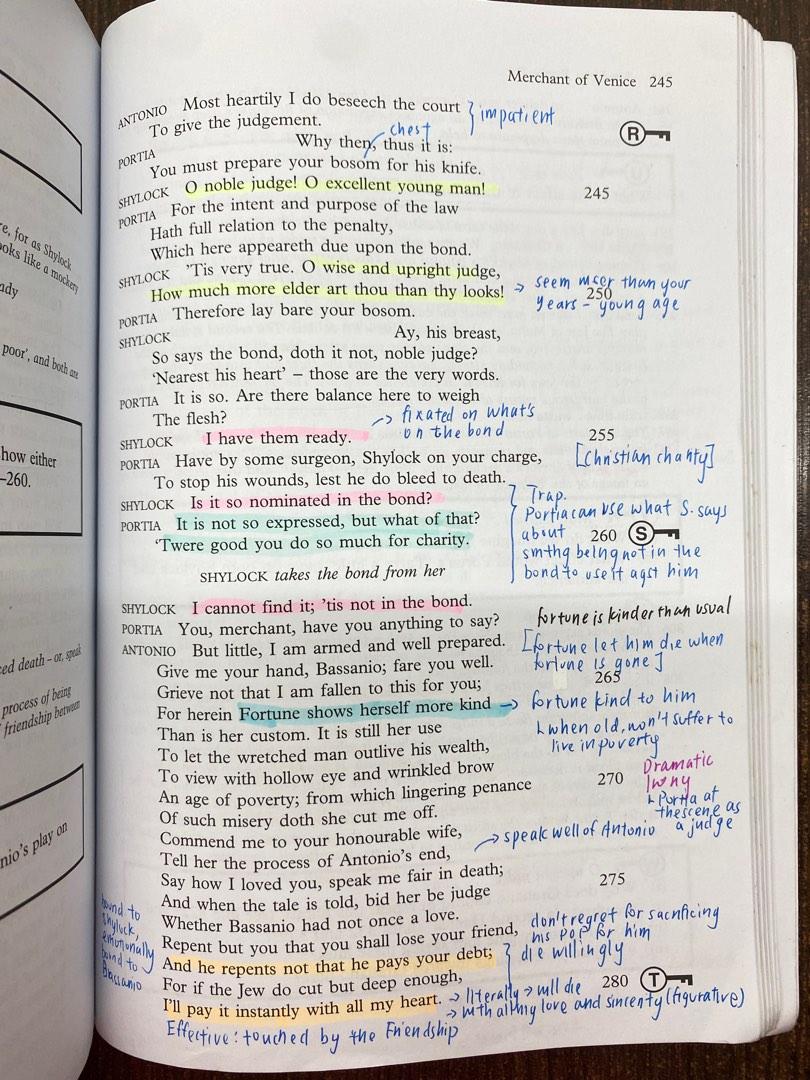 Merchant of Venice 245
ANTONIO Most heartily I do beseech the court
To give the judgement.
impatient
R
PORTIA Why then, thus it is:
chest
You must prepare your bosom for his knife.
SHYLOCK O noble judge! O excellent young man! 245
PORTIA For the intent and purpose of the law
Hath full relation to the penalty,
Which here appeareth due upon the bond.
SHYLOCK 'Tis very true. O wise and upright judge,
How much more elder art thou than thy looks! 250
→ seem wiser than your
years – young age
PORTIA Therefore lay bare your bosom.
SHYLOCK Ay, his breast,
So says the bond, doth it not, noble judge?
'Nearest his heart' – those are the very words.
PORTIA It is so. Are there balance here to weigh
The flesh?
→ fixated on what's
on the bond
SHYLOCK I have them ready. 255
PORTIA Have by some surgeon, Shylock on your charge,
[Christian charity]
To stop his wounds, lest he do bleed to death.
SHYLOCK Is it so nominated in the bond?
PORTIA It is not so expressed, but what of that?
'Twere good you do so much for charity. 260
S
Trap.
Portia can use what S. says
about
smthg being not in the
bond to use it agst him
SHYLOCK takes the bond from her
SHYLOCK I cannot find it; 'tis not in the bond.
PORTIA You, merchant, have you anything to say?
fortune is kinder than usual
ANTONIO But little, I am armed and well prepared.
[fortune let him die when
fortune is gone]
Give me your hand, Bassanio; fare you well. 265
Grieve not that I am fallen to this for you;
For herein Fortune shows herself more kind
→ fortune kind to him
↳ when old, won't suffer to
live in poverty
Than is her custom. It is still her use
To let the wretched man outlive his wealth,
To view with hollow eye and wrinkled brow
An age of poverty; from which lingering penance 270
Of such misery doth she cut me off.
Dramatic
Irony
↳ Portia at
the scene as
a judge
Commend me to your honourable wife,
→ speak well of Antonio
Tell her the process of Antonio's end,
Say how I loved you, speak me fair in death; 275
And when the tale is told, bid her be judge
Whether Bassanio had not once a love.
Repent but you that you shall lose your friend,
don't regret for sacrificing
his POF for him
And he repents not that he pays your debt;
die willingly
For if the Jew do cut but deep enough, 280
T
I'll pay it instantly with all my heart.
→ literally → will die
→ with all my love and sincerity (figurative)
bound to
Shylock,
emotionally
bound to
Bassanio
Effective: touched by the Friendship
re, for as Shylock
ooks like a mockery
ady
poor', and both are
how either
–260.
ced death – or, speak
process of being
friendship between
nio's play on